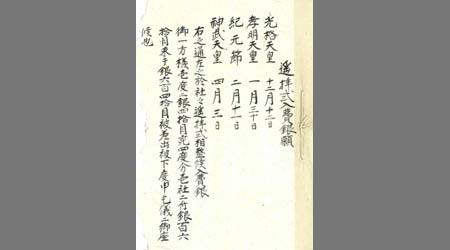 遙拝式入費銀願
光格天皇 十二月十二日
孝明天皇 一月三十日
紀元節 二月十一日
神武天皇 四月三日
右之通左之於社々遙拝式相整候入費銀
御一方様壱度ニ銀四拾目宛四度分壱社ニ付銀百六
拾目来ル銀六百四拾目被差出被下度申上儀ニ御座
候也